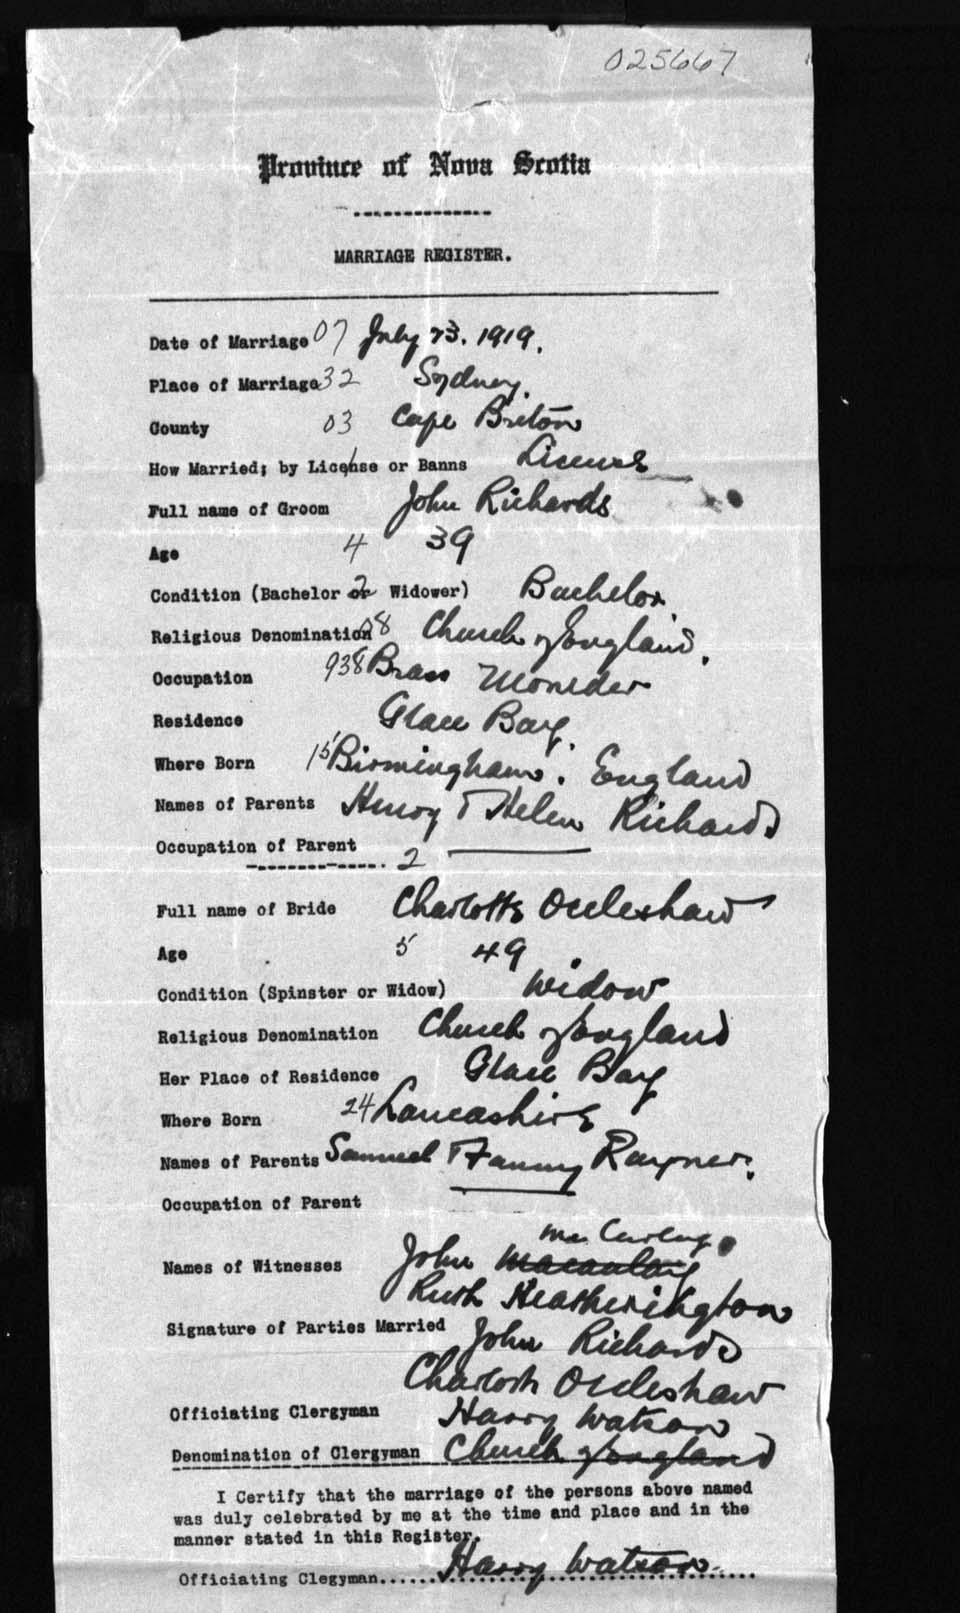 025667
Province of Nova Scotia
MARRIAGE REGISTER.
Date of Marriage 07 July 23. 1919.
Place of Marriage 32 Sydney.
County 03 Cape Briton
How Married; by License or Banns License
Full name of Groom John Richards
Age 4 39
Condition (Bachelor or Widower) 2 Bachelor.
Religious Denomination 08 Church of England.
Occupation 938 Brass Moneder
Residence Glace Bay.
Where Born 15 Birmingham. England
Names of Parents Henry & Helen Richards
Occupation of Parent
2
Full name of Bride Charlotte Ouleshaw
Age 5 49
Condition (Spinster or Widow) Widow
Religious Denomination Church of England
Her Place of Residence Glace Bay
Where Born 24 Lancashire
Names of Parents Samuel & Fanny Rayner.
Occupation of Parent
Names of Witnesses John Macaulay
Ruth Heatherington
Signature of Parties Married John Richards
Charlotte Ouleshaw
Officiating Clergyman Harry Watson
Denomination of Clergyman Church of England
I Certify that the marriage of the persons above named
was duly celebrated by me at the time and place and in the
manner stated in this Register.
Officiating Clegyman...... Harry Watson